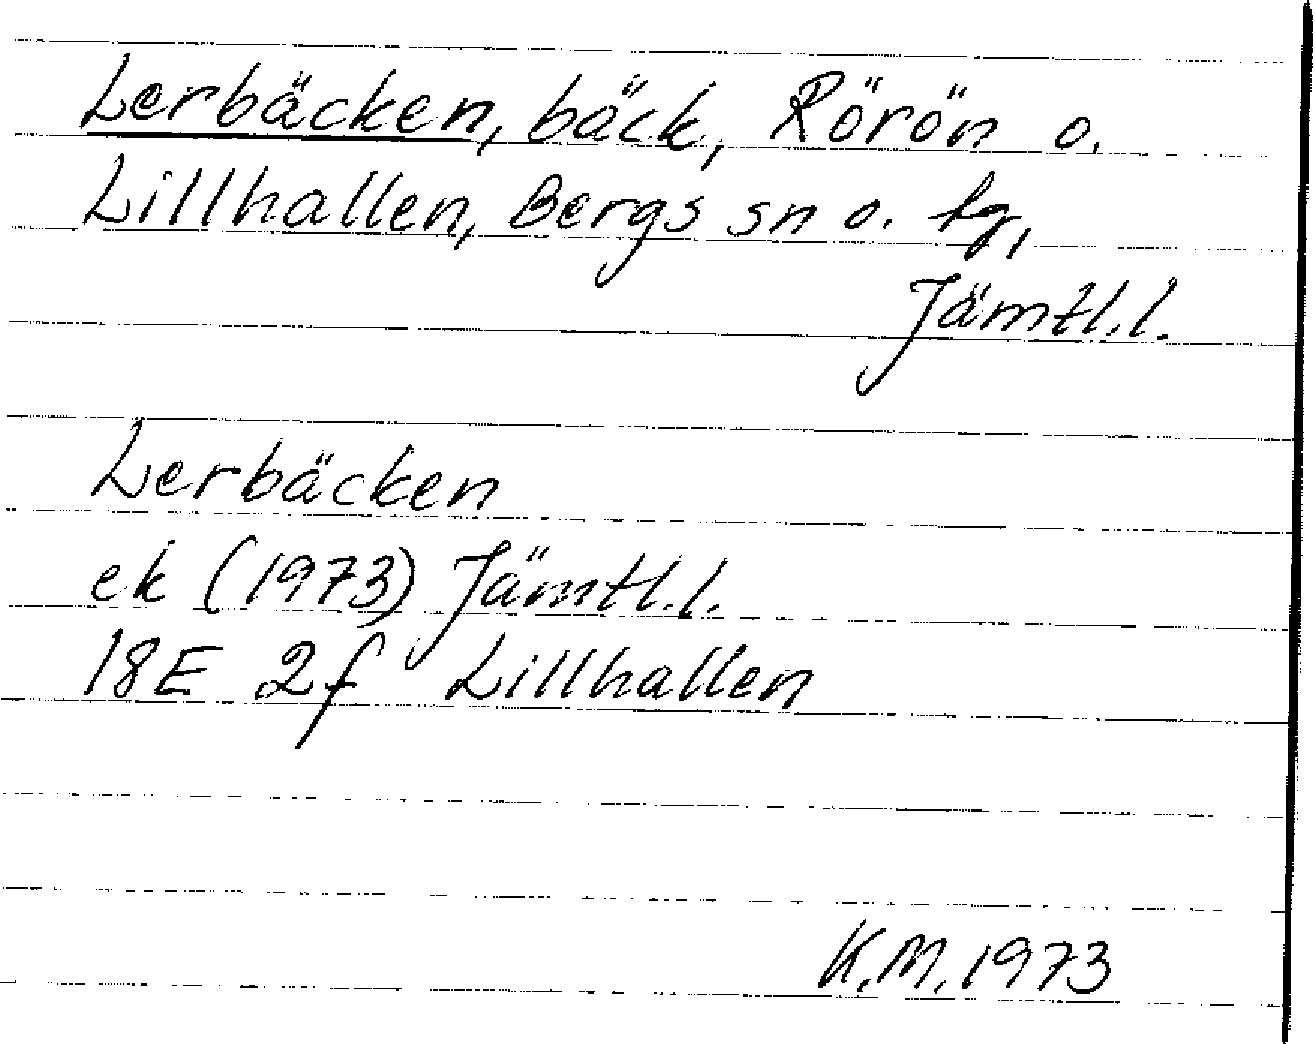 Lerbäcken, bäck, Rörön o.
Lillhallen, Bergs sn o. tg,
Jämtl.l.
Lerbäcken
ek (1973) Jämtl.l.
18E 2f Lillhallen
K.M. 1973